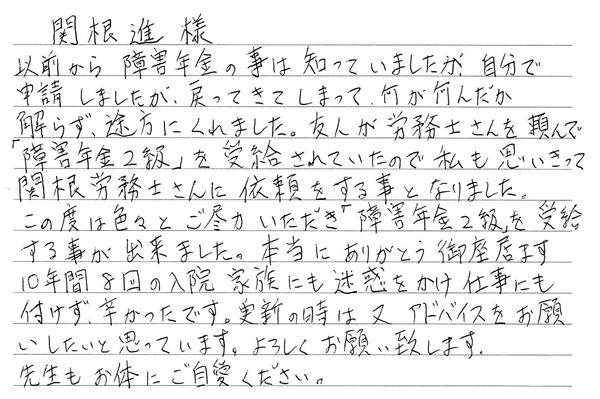 関根進様
以前から障害年金の事は知っていましたが、自分で
申請しましたが、戻ってきてしまって、何が何んだか
解らず、途方にくれました。友人が労務士さんを頼んで
「障害年金2級」を受給されていたので私も思いきって
関根労務士さんに依頼をする事となりました。
この度は色々とご尽力いただき「障害年金2級」を受給
する事が出来ました。本当にありがとう御座居ます
10年間8回の入院家族にも迷惑をかけ仕事にも
付けず、辛かったです。更新の時は又アドバイスをお願
いしたいと思っています。よろしくお願い致します.
先生もお体にご自愛ください。